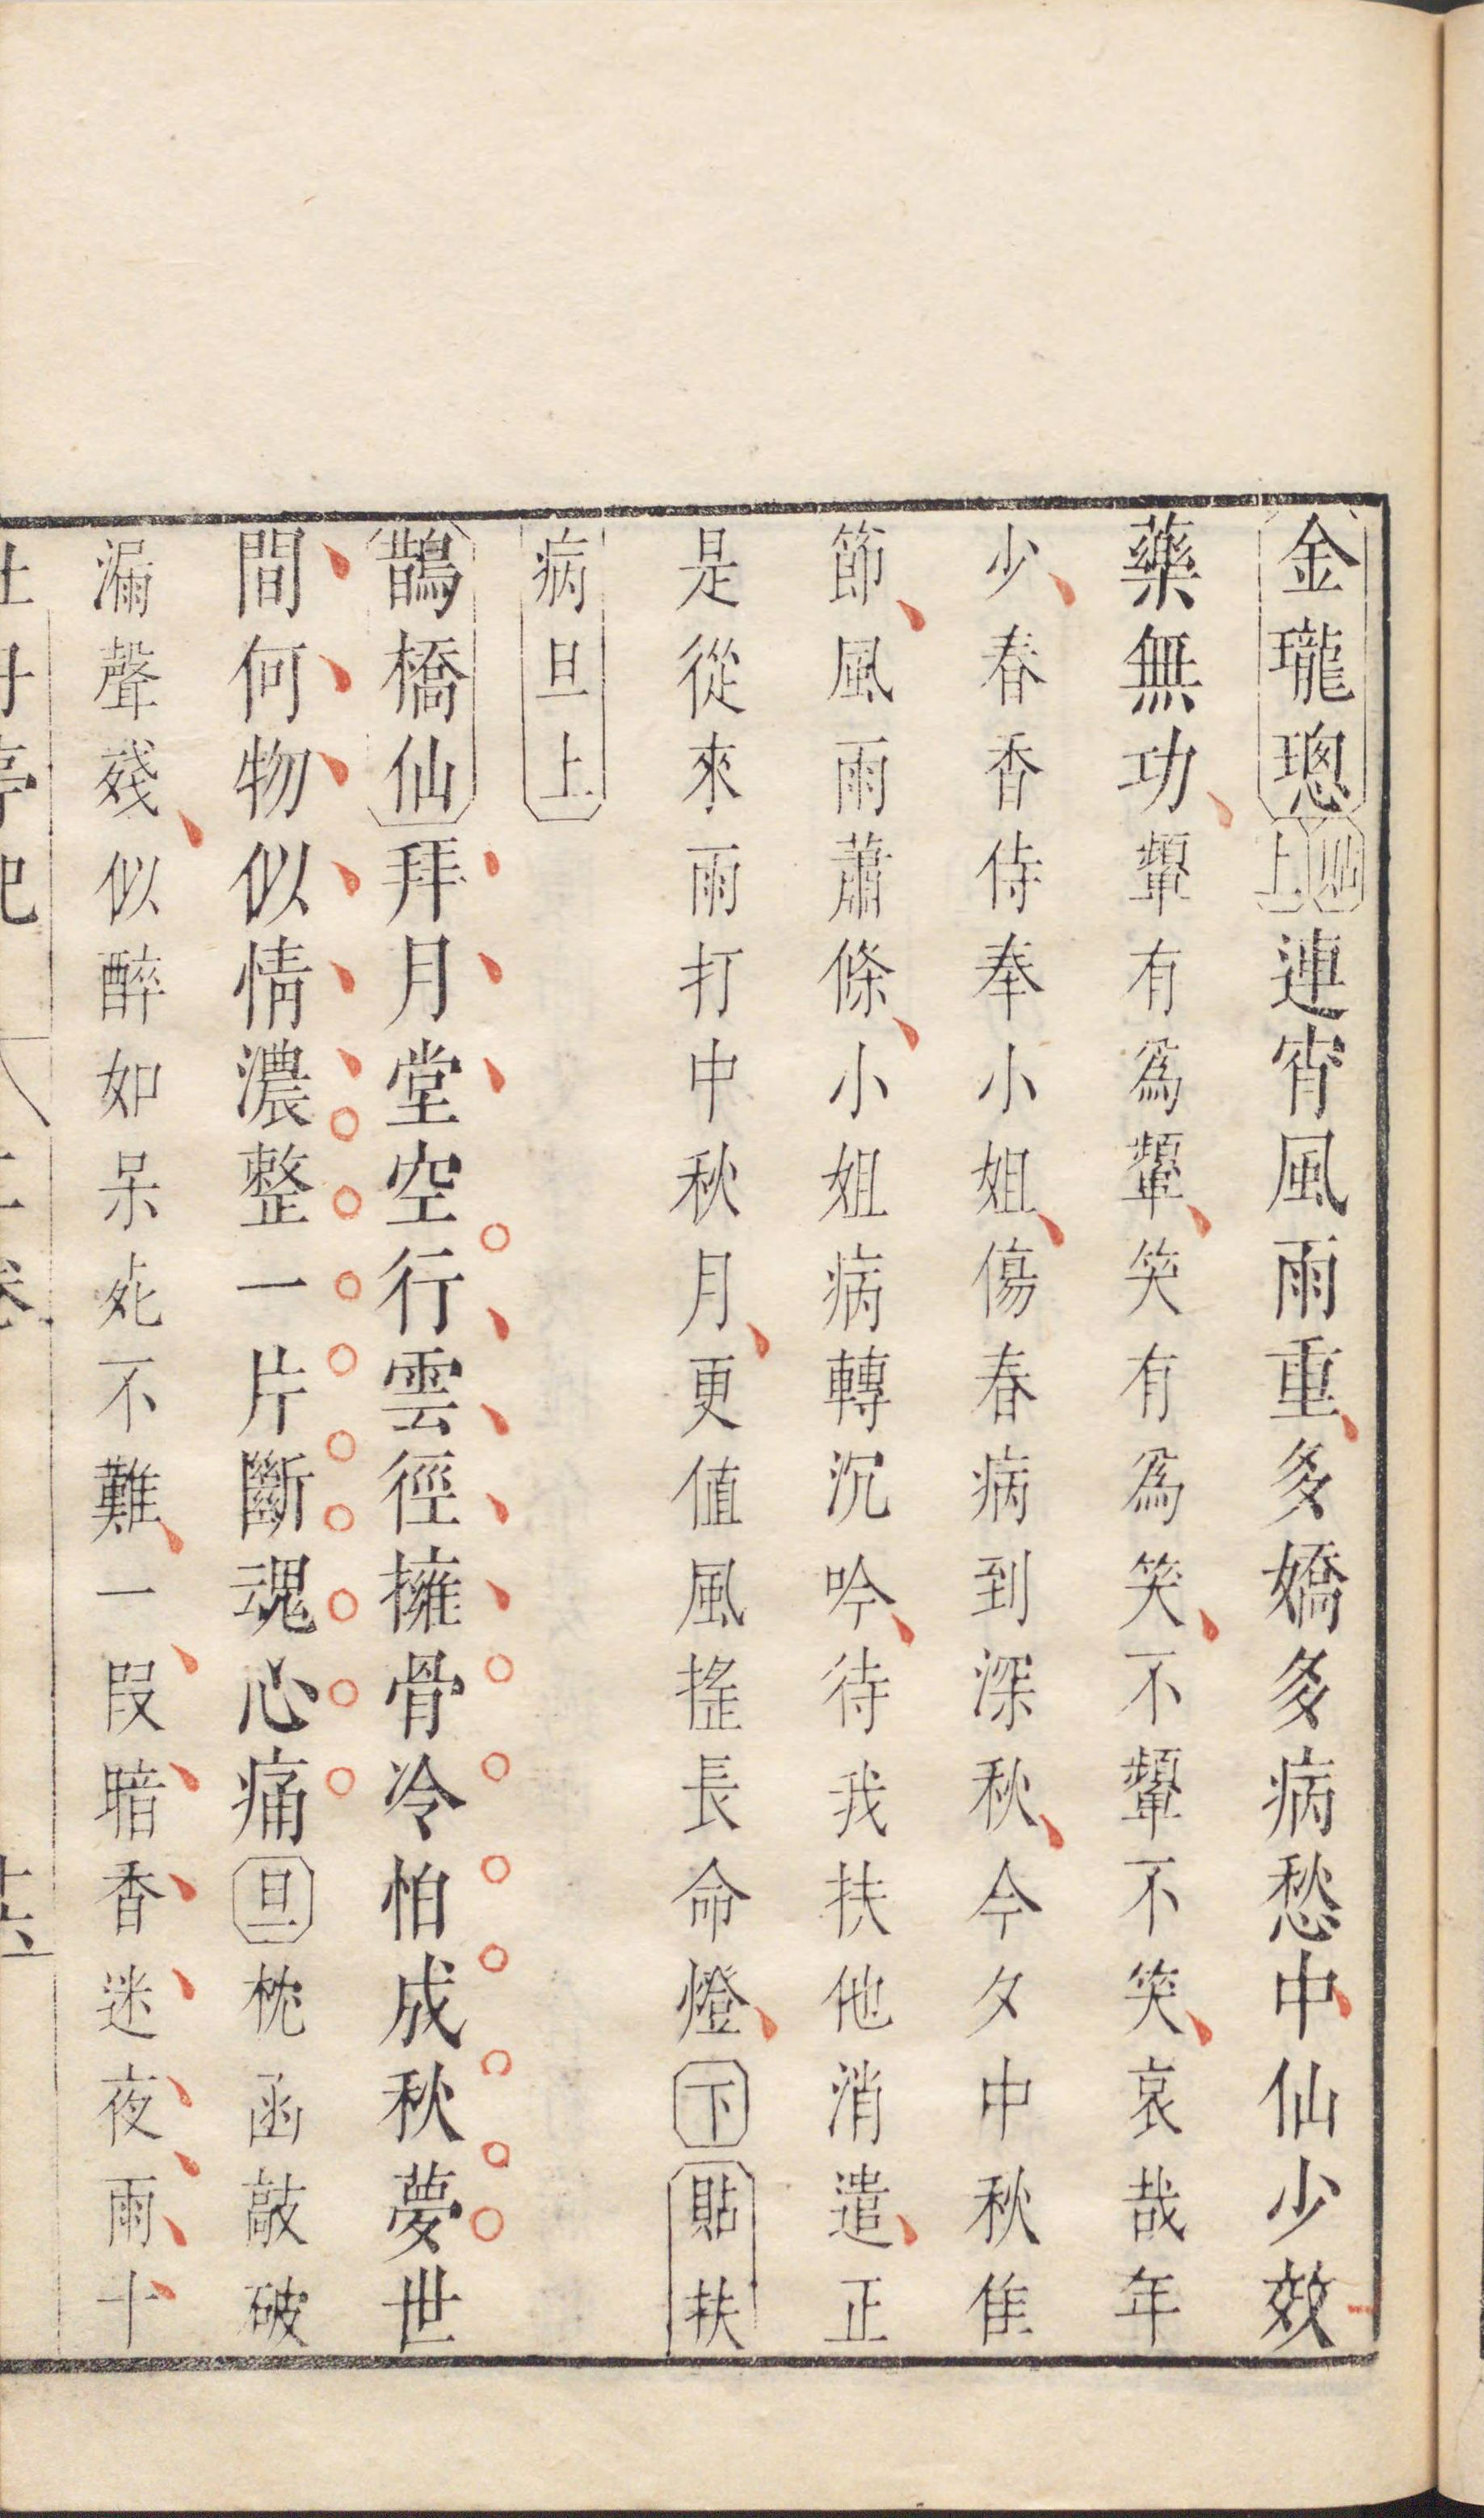 金瓏璁貼上連宵風雨重、多嬌多病愁中、仙少效
藥無功、顰有爲顰、笑有爲笑、不顰不笑、哀哉年
少、春香侍奉小姐、傷春病到深秋、今夕中秋隹
節、風雨蕭條、小姐病轉沉吟、待我扶他消遣、正
是從來雨打中秋月、更值風搖長命燈、下貼扶
病旦上
鵲橋仙拜月堂空行雲徑擁骨冷怕成秋夢世
間何物似情濃整一片斷魂心痛旦枕函敲破
漏聲殘、似醉如呆死不難、一段暗香迷夜雨、十